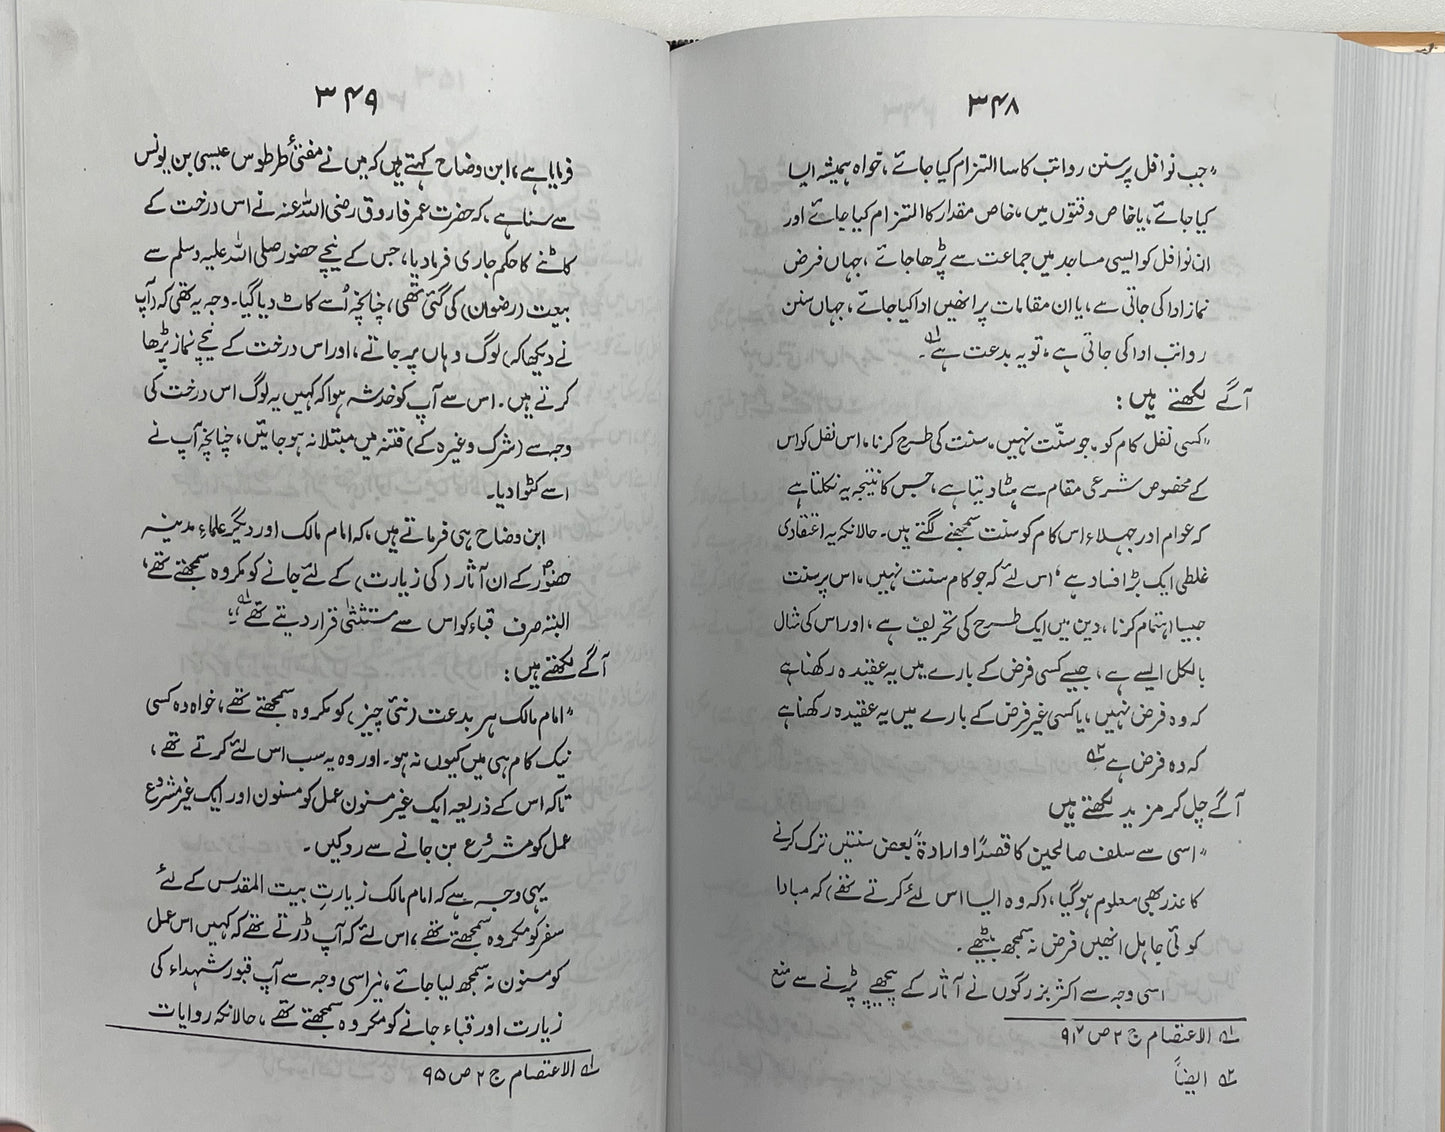 ۳۴۸
"جب نوافل پر سنن رواتب کا سا التزام کیا جائے، خواہ ہمیشہ ایسا
کیا جائے، یا خاص وقتوں میں، خاص مقدار کا التزام کیا جائے اور
ان نوافل کو ایسی مساجد میں جماعت سے پڑھا جائے، جہاں فرض
نماز ادا کی جاتی ہے، یا ان مقامات پر انھیں ادا کیا جائے، جہاں سنن
رواتب ادا کی جاتی ہے، تو یہ بدعت ہے لہ۔
آگے لکھتے ہیں:
"کسی نفل کام کو۔ جو سنّت نہیں۔ سنت کی طرح کرنا، اس نفل کو اس
کے مخصوص شرعی مقام سے ہٹا دیتا ہے، جس کا نتیجہ یہ نکلتا ہے
کہ عوام اور جہلاء اس کام کو سنت سمجھنے لگتے ہیں۔ حالانکہ یہ اعتقادی
غلطی ایک بڑا فساد ہے، اس لئے کہ جو کام سنت نہیں، اس پر سنت
جیسا اہتمام کرنا، دین میں ایک طرح کی تحریف ہے، اور اس کی مثال
بالکل ایسے ہے، جیسے کسی فرض کے بارے میں یہ عقیدہ رکھنا ہے
کہ وہ فرض نہیں، یا کسی غیر فرض کے بارے میں یہ عقیدہ رکھنا ہے
کہ وہ فرض ہے ۲ہ
آگے چل کر مزید لکھتے ہیں
"اسی سے سلف صالحین کا قصداً و ارادۃً بعض سنتیں ترک کرنے
کا عذر بھی معلوم ہو گیا، (کہ وہ ایسا اس لئے کرتے تھے) کہ مبادا
کوئی جاہل انھیں فرض نہ سمجھ بیٹھے۔
اسی وجہ سے اکثر بزرگوں نے آثار کے پیچھے پڑنے سے منع
لہ الاعتصام ج ۲ ص ۹۲
۲ہ ایضاً
۳۴۹
فرمایا ہے، ابن وضاح کہتے ہیں کہ میں نے مفتیٔ طرطوس عیسیٰ بن یونس
سے سنا ہے، کہ حضرت عمر فاروق رضی اللہ عنہ نے اس درخت کے
کاٹنے کا حکم جاری فرما دیا، جس کے نیچے حضور صلی اللہ علیہ وسلم سے
بیعت (رضوان) کی گئی تھی، چنانچہ اُسے کاٹ دیا گیا۔ وجہ یہ تھی کہ (آپ
نے دیکھا کہ) لوگ وہاں پر جاتے، اور اس درخت کے نیچے نماز پڑھا
کرتے ہیں۔ اس سے آپ کو خدشہ ہوا کہ کہیں یہ لوگ اس درخت کی
وجہ سے (شرک وغیرہ کے) فتنہ میں مبتلا نہ ہو جائیں، چنانچہ آپ نے
اسے کٹوا دیا۔
ابن وضاح ہی فرماتے ہیں، کہ امام مالک اور دیگر علماءِ مدینہ
حضورؐ کے ان آثار (کی زیارت) کے لئے جانے کو مکروہ سمجھتے تھے،
البتہ صرف قباء کو اس سے مستثنیٰ قرار دیتے تھے لہ؛
آگے لکھتے ہیں:
"امام مالک ہر بدعت (نئی چیز) کو مکروہ سمجھتے تھے، خواہ وہ کسی
نیک کام ہی میں کیوں نہ ہو۔ اور وہ یہ سب اس لئے کرتے تھے،
تاکہ اس کے ذریعہ ایک غیر مسنون عمل کو مسنون اور ایک غیر مشروع
عمل کو مشروع بن جانے سے روکیں۔
یہی وجہ ہے کہ امام مالک زیارتِ بیت المقدس کے لئے
سفر کو مکروہ سمجھتے تھے، اس لئے کہ آپ ڈرتے تھے کہ کہیں اس عمل
کو مسنون نہ سمجھ لیا جائے، نیز اسی وجہ سے آپ قبور شہداء کی
زیارت اور قباء جانے کو مکروہ سمجھتے تھے، حالانکہ روایات
لہ الاعتصام ج ۲ ص ۹۵